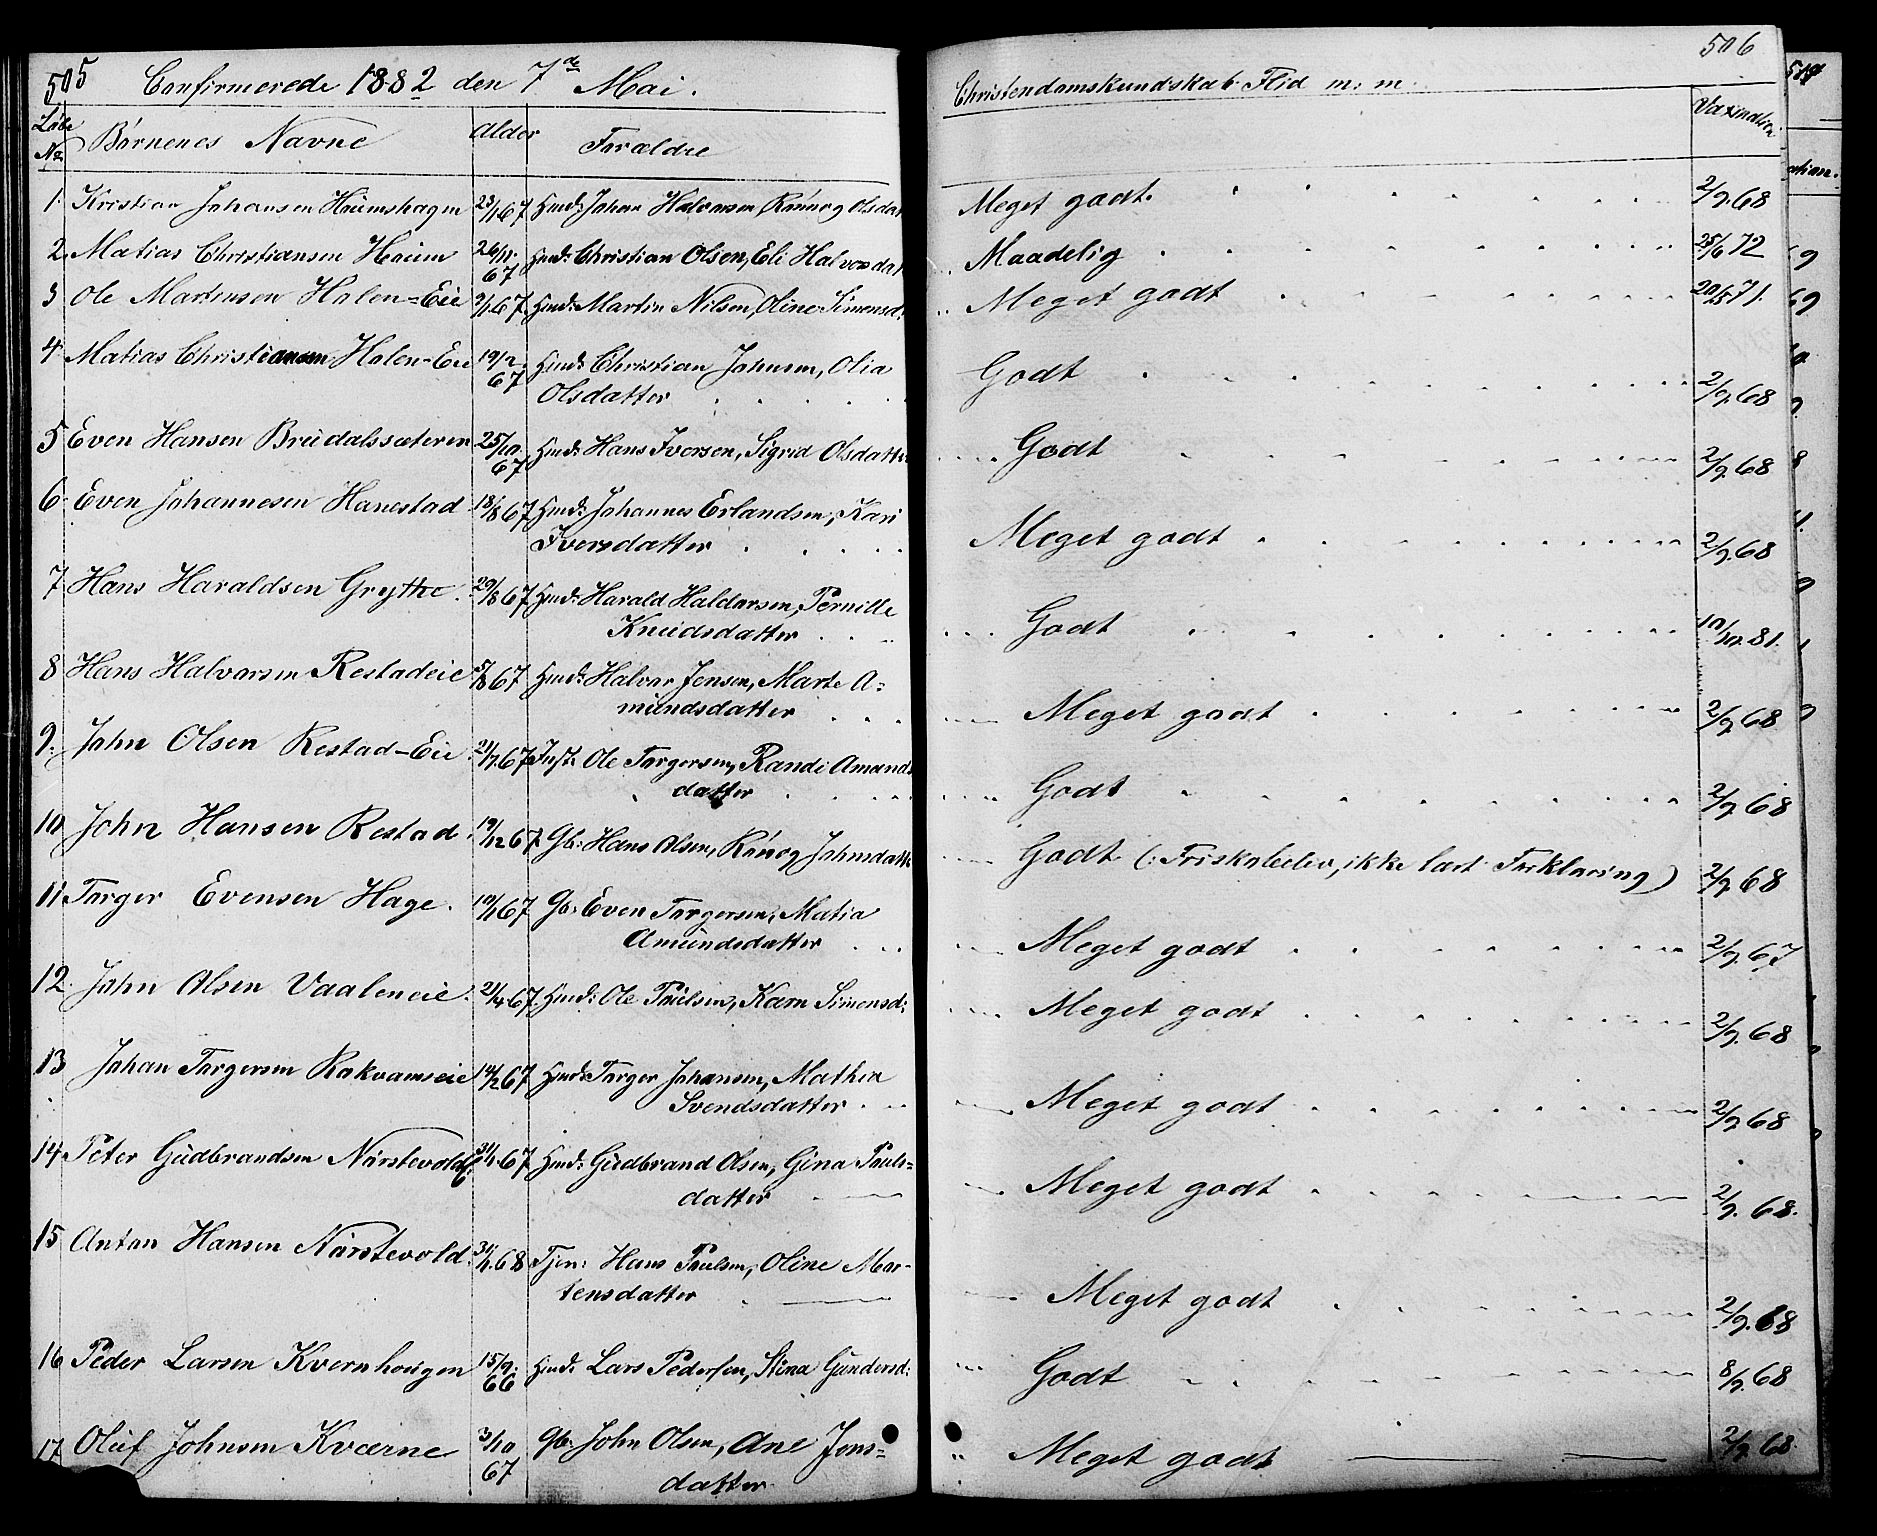 505 Confirmerede 1882 den 7de Mai.
Løbe No Børnenes Navne Alder Forældre
1. Kristian Johansen Heimshagen 23/1 67 Hmd: Johan Halvorsen, Rønnog Olsdat
2. Matias Christiansen Heium 26/11. 67 Hmd: Christian Olsen, Eli Halvorsdat
3 Ole Martinsen Holen-Eie 3/1. 67. Hmd: Martin Nilsen, Oline Simensd:
4. Matias Christiansen Holen-Eie 19/2. 67 Hmd: Christian Johnsen, Olia
Olsdatter
5 Even Hansen Brudalssæteren 25/10. 67 Hmd: Hans Iversen, Sigrid Olsdatter
6. Even Johannesen Hanestad 18/8 67 Hmd: Johannes Erlandsen, Kari
Iversdatter
7 Hans Haraldsen Grytte. 29/8 67 Hmd: Harald Haldorsen, Pernille
Knudsdatter
8 Hans Halvorsen Restadeie 5/8 67 Hmd: Halvor Jensen, Marte A=
mundsdatter
9. John Olsen Restad-Eie 21/7. 67 Inst: Ole Torgersen, Randi Amunds
datter
10 John Hansen Restad. 19/12 67. Gb: Hans Olsen, Rønog Johnsdatt
11. Torger Evensen Hage. 10/1 67 Gb: Even Torgersen, Matia
Amundsdatter
12. John Olsen Vaaleneie. 21/4. 67. Hmd: Ole Paulsen, Karn Simensd:
13 Johan Torgersen Rokvamseie 14/2 67 Hmd: Torger Johansen, Mathea
Svendsdatter
14. Peter Gudbrandsen Nørstevold 67. Hmd: Gudbrand Olsen, Gina Pauls=
datter
15 Anton Hansen Nørstevold. 31/1. 68 Tjen: Hans Paulsen, Oline Mor-
tensdatter
16 Peder Larsen Kvernhougen 15/9. 66 Hmd: Lars Pedersen, Stina Gundersd:
17 Oluf Johnsen Kværne 3/10 67 Gb: John Olsen, Ane Jons=
datter.
506
Christendomskundskab Flid m: m. Vaxination
Meget godt. 2/9. 68
Maadelig 25/6 72
Meget godt 20/5 71.
Godt 2/9. 68
Godt 2/9. 68
Meget godt 2/9. 68
Godt 10/10. 81.
Meget godt 2/9 68
Godt 2/9 68
Godt (: Friskoleelev, ikke lært Forklaring) 2/9 68
Meget godt 2/9. 67
Meget godt 2/9. 68
Meget godt 2/9 68
Meget godt 2/9. 68.
Meget godt 2/9. 68
Godt 8/9. 68
Meget godt 2/9 68